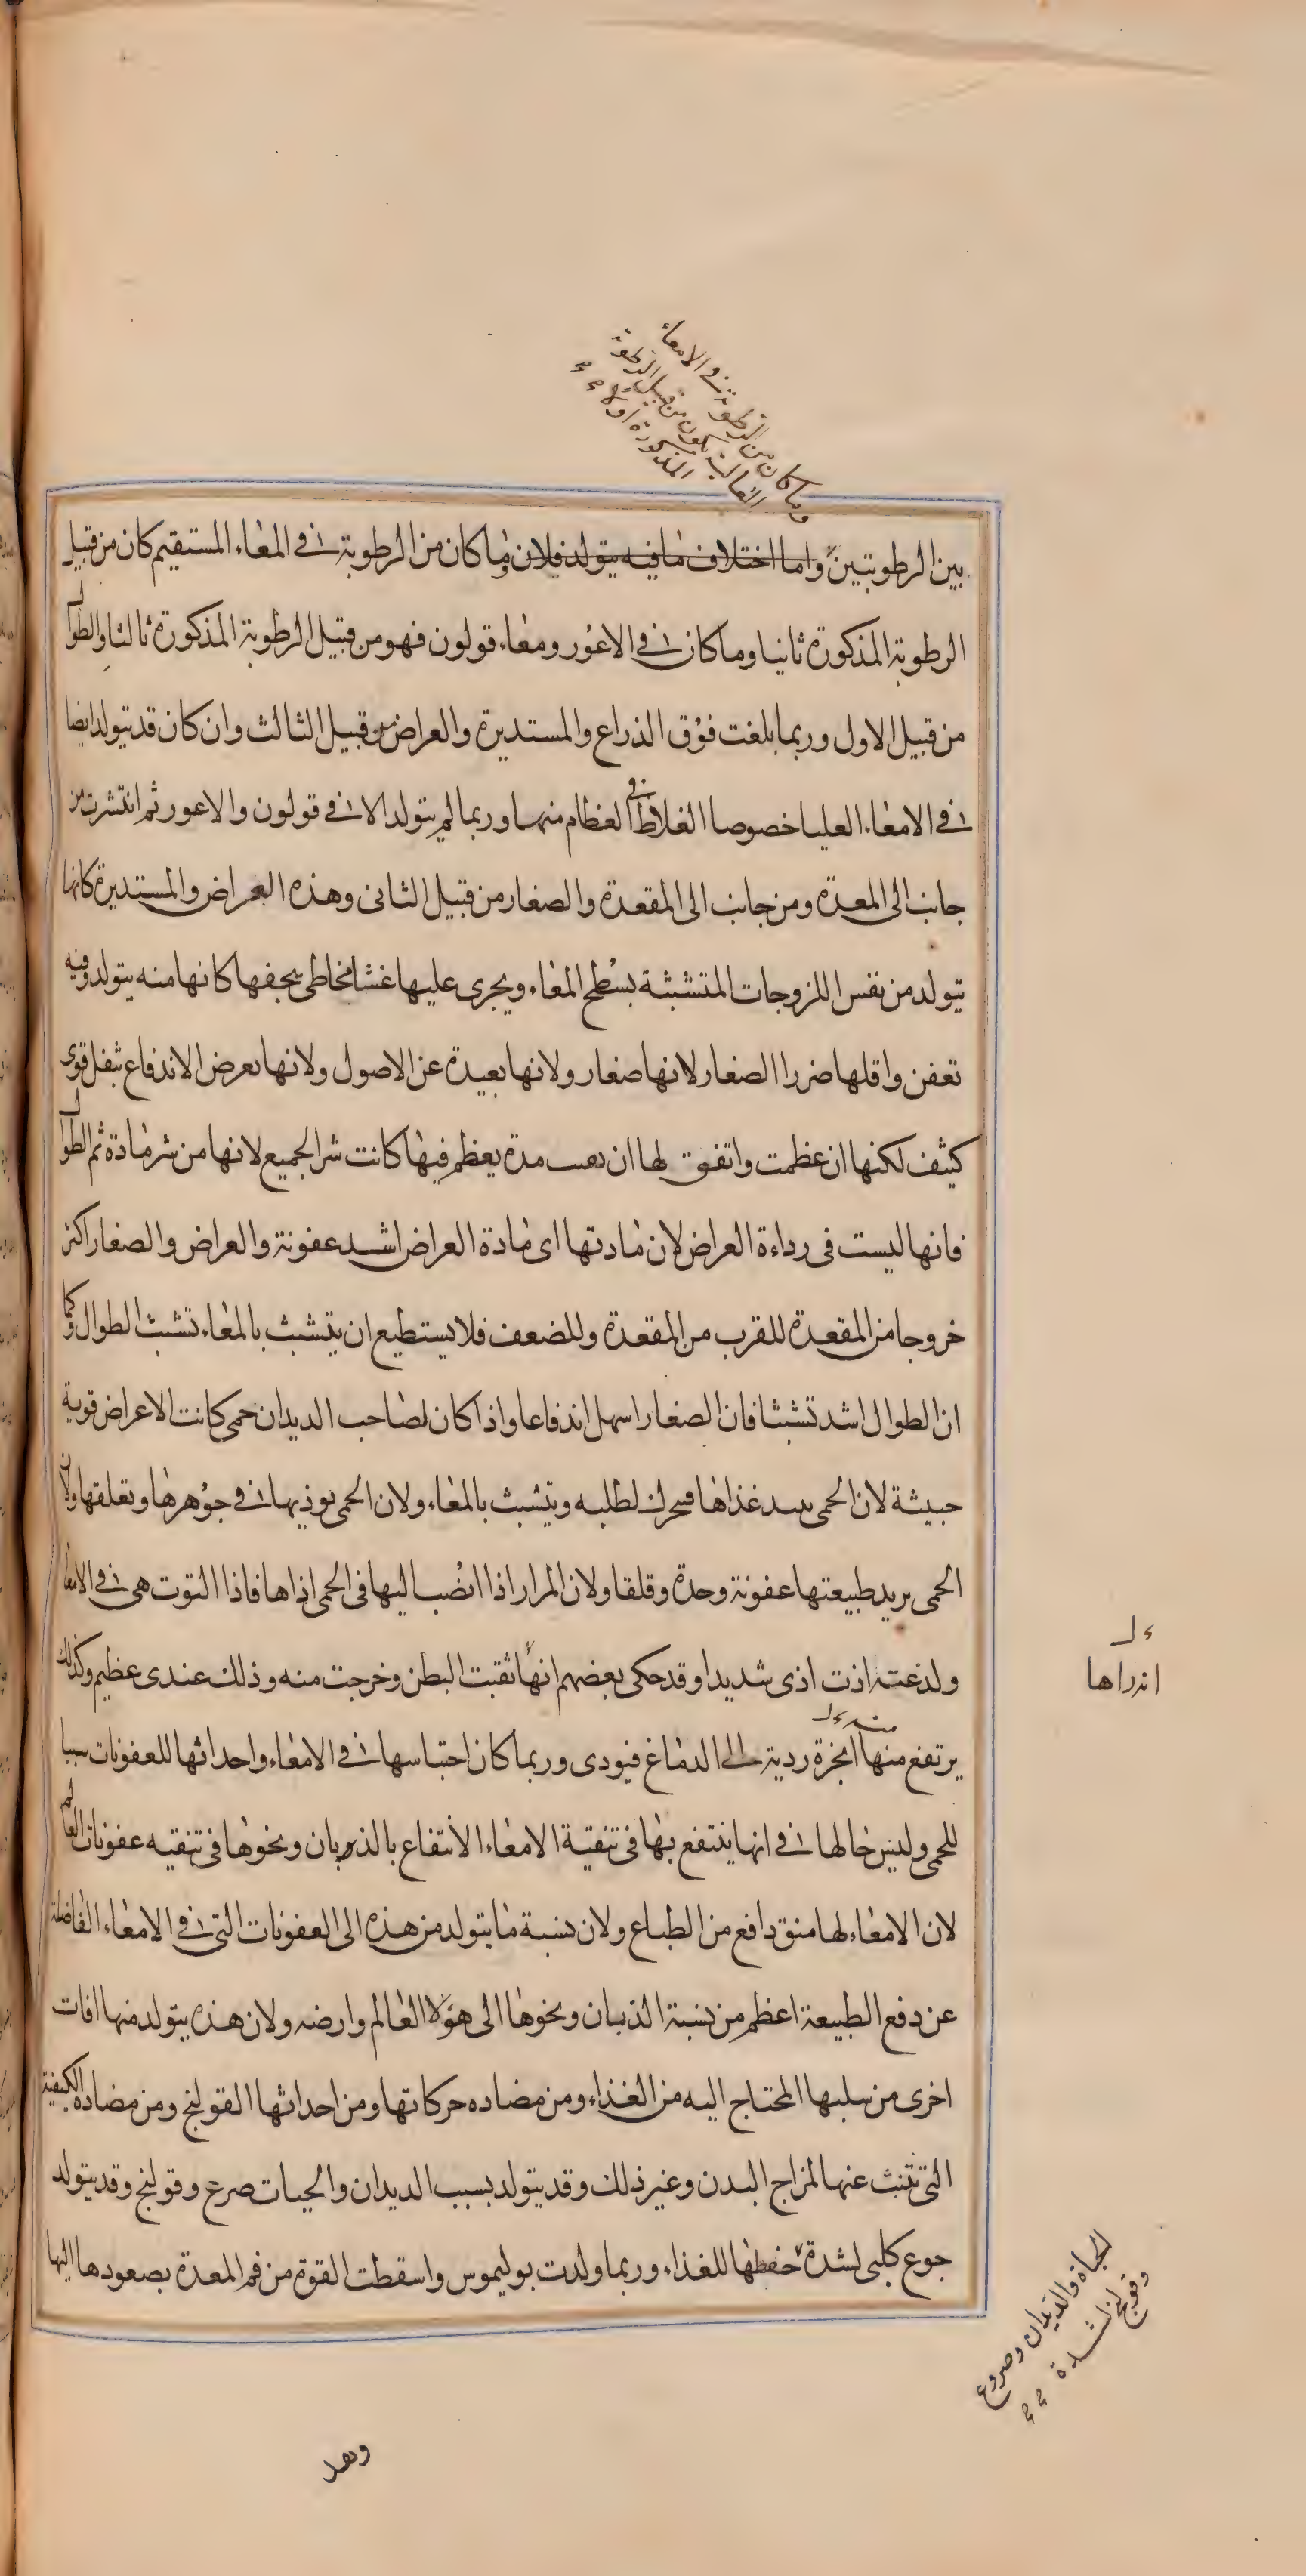 وما كان من الرطوبة في الامعاء
العالية يكون من قبيل الرطوبة
المذكورة اولا
بين الرطوبتين واما اختلاف ما فيه يتولد فلان وما كان من الرطوبة في المعاء المستقيم كان من قبيل
الرطوبة المذكورة ثانيا وما كان في الاعور ومعاء قولون فهو من قبيل الرطوبة المذكورة ثالثا والطوال
من قبيل الاول وربما بلغت فوق الذراع والمستديرة والعراض من قبيل الثالث وان كان قد يتولد ايضا
في الامعاء العليا خصوصا الغلاظ في العظام منها وربما لم يتولد الا في قولون والاعور ثم انتشرت من
جانب الى المعدة ومن جانب الى المقعدة والصغار من قبيل الثانى وهذه العراض والمستديرة كانها
يتولد من نفس اللزوجات المتشبثة بسطح المعاء ويجرى عليها غشا مخاطى يجفها كانها منه يتولد وفيه
تعفن واقلها ضررا الصغار لانها صغار ولانها بعيدة عن الاصول ولانها بعرض الاندفاع بثفل قوى
كثف لكنها ان عظمت واتفق لها ان مدة يعظم فيها كانت شر الجميع لانها من شر مادة ثم الطوال
فانها ليست فى رداءة العراض لان مادتها اى مادة العراض اشد عفونة والعراض والصغار اكثر
خروجا من المقعدة للقرب من المقعدة وللضعف فلا يستطيع ان يتشبث بالمعاء تشبث الطوال وكما
ان الطوال اشد تشبثا فان الصغار اسهل اندفاعا واذا كان لصاحب الديدان حمى كانت الاعراض قوية
خبيثة لان الحمى غذاها لطلبه ويتشبث بالمعاء ولان الحمى يوذيها في جوهرها وتعلقها ولان
الحمى يريد طبيعتها عفونة وحدة وقلقا ولان المرار اذا انصب اليها فى الحمى اذاها فاذا التوت هى في الامعا
ولدغته اذت اذى شديدا وقد حكى بعضهم انها ثقبت البطن وخرجت منه وذلك عندى عظيم وكذلك
يرتفع منها ابخرة ردية الى الدماغ فيودى وربما كان احتباسها في الامعاء واحداثها للعفونات سببا
للحمى وليس حالها في انها ينتفع بها فى تنقية الامعاء الانتفاع بالذبان ونحوها فى تنقيه عفونات العالم
لان الامعاء لها منق دافع من الطباع ولان نسبة ما يتولد من هذه الى العفونات التى في الامعاء الفاضلة
عن دفع الطبيعة اعظم من نسبة الذبان ونحوها الى هؤلا العالم وارضه ولان هذه يتولد منها افات
اخرى من سلبها المحتاج اليه من الغذاء ومن مضاده حركاتها ومن احداثها القولنج ومن مضاده الكيفية
التى تنبث عنها لمزاج البدن وغير ذلك وقد يتولد بسبب الديدان والحيات صرع وقولنج وقد يتولد
جوع كلبى لشدة خفطها للغذاء وربما ولدت بوليموس واسقطت القوة من فم المعدة بصعودها اليها